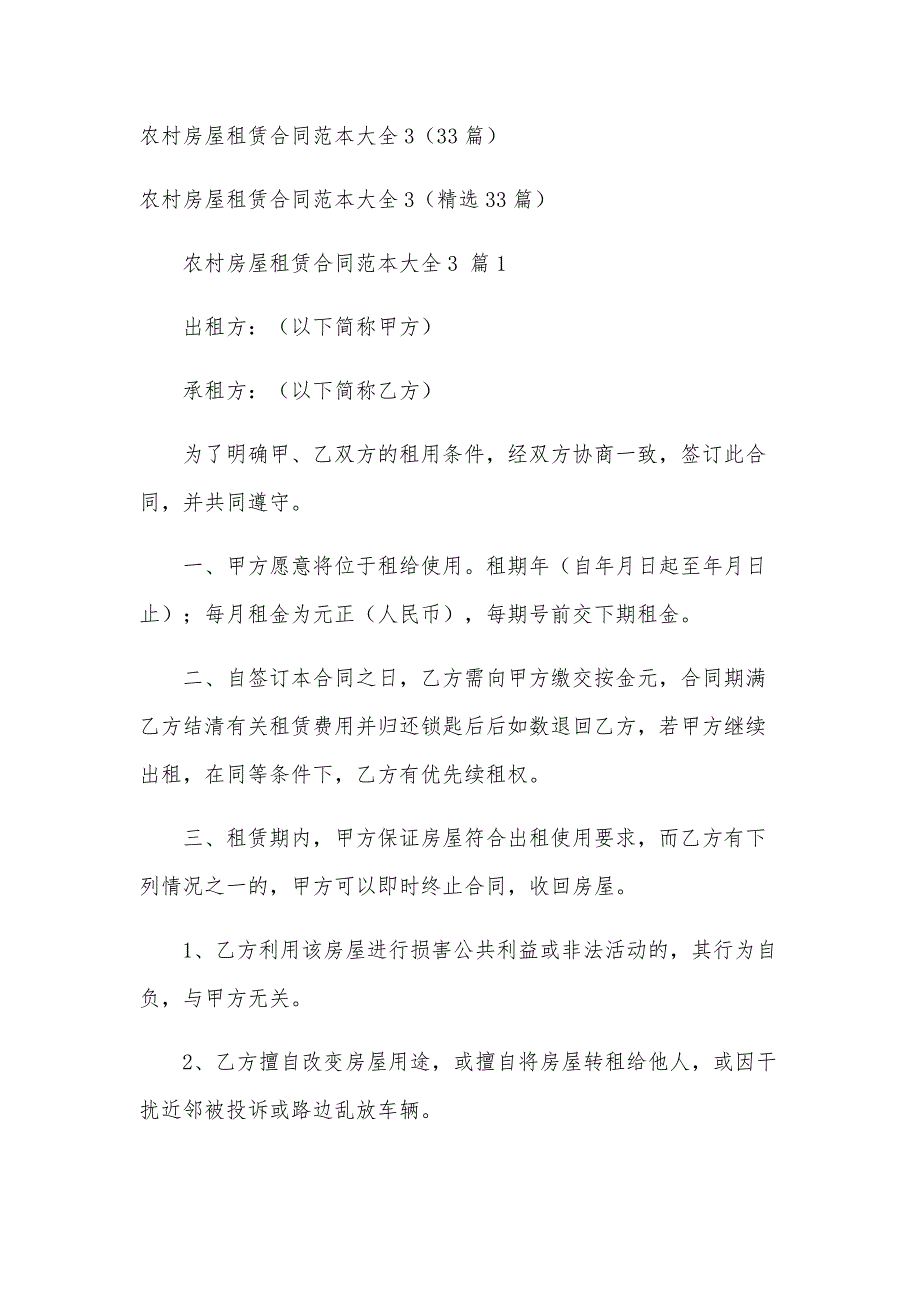 农村房屋租赁合同范本大全3（33篇）
农村房屋租赁合同范本大全3（精选33篇）
农村房屋租赁合同范本大全3 篇1
出租方：（以下简称甲方）
承租方：（以下简称乙方）
为了明确甲、乙双方的租用条件，经双方协商一致，签订此合
同，并共同遵守。
一、甲方愿意将位于租给使用。租期年（自年月日起至年月日
止）；每月租金为元正（人民币），每期号前交下期租金。
二、自签订本合同之日，乙方需向甲方缴交按金元，合同期满
乙方结清有关租赁费用并归还锁匙后后如数退回乙方，若甲方继续
出租，在同等条件下，乙方有优先续租权。
三、租赁期内，甲方保证房屋符合出租使用要求，而乙方有下
列情况之一的，甲方可以即时终止合同，收回房屋。
1、乙方利用该房屋进行损害公共利益或非法活动的，其行为自
负，与甲方无关。
2、乙方擅自改变房屋用途，或擅自将房屋转租给他人，或因干
扰近邻被投诉或路边乱放车辆。